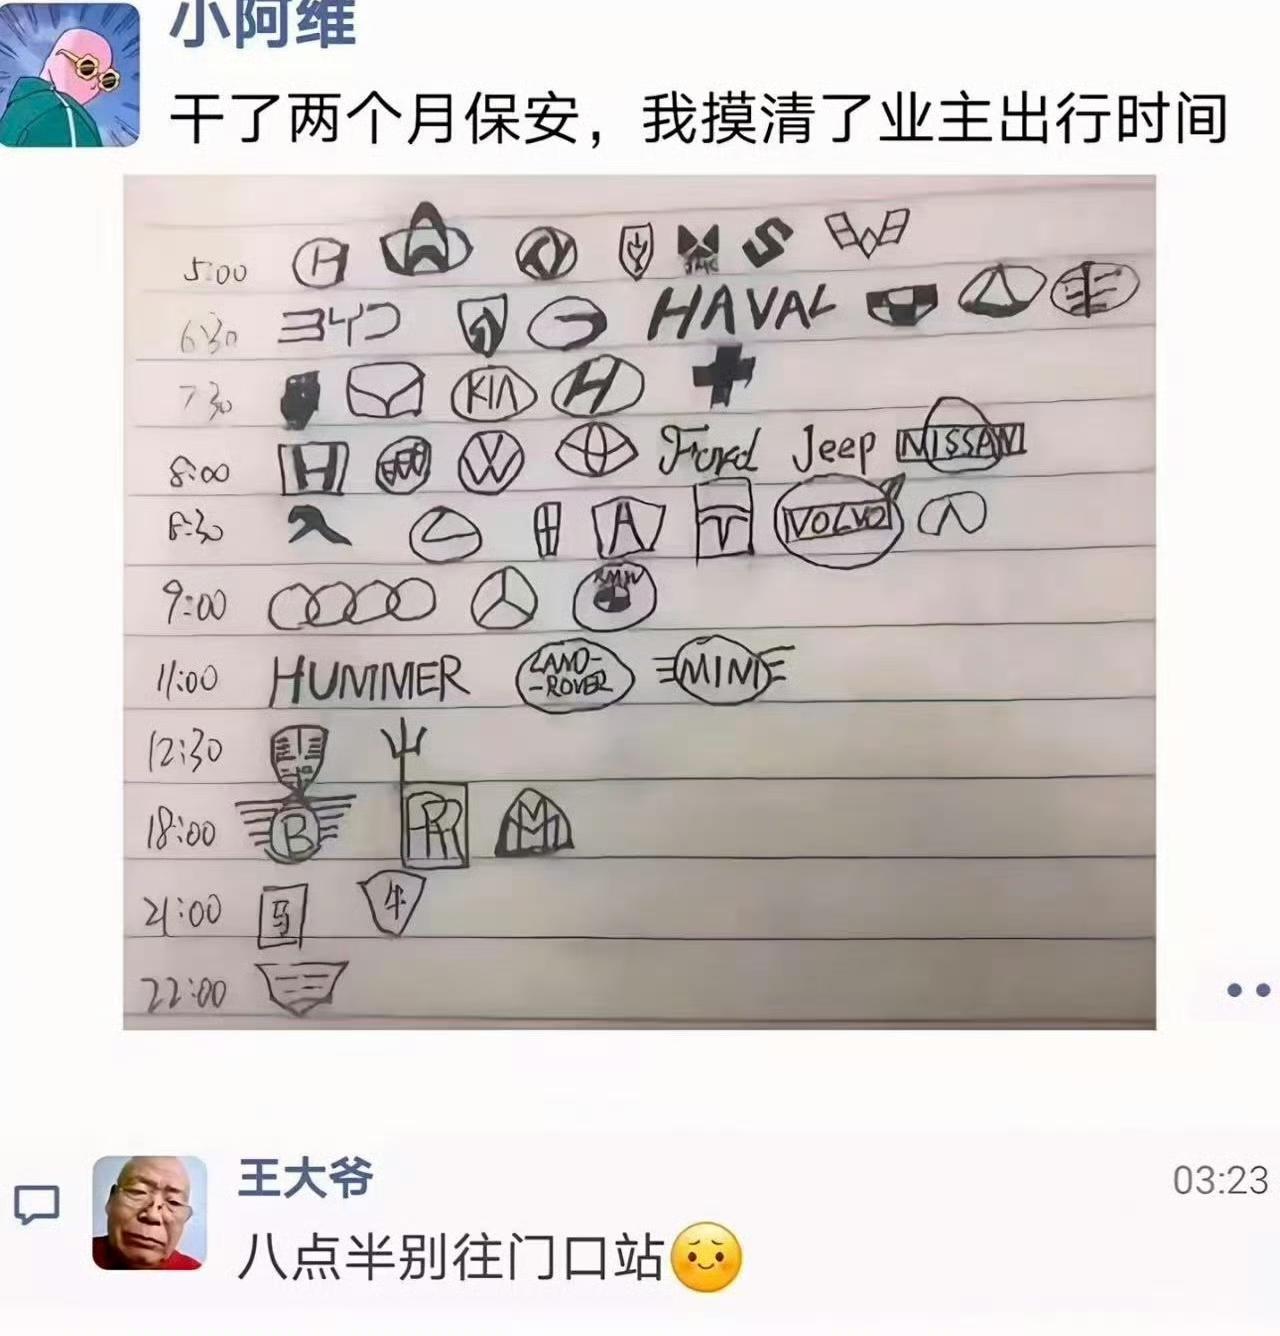 小阿维
干了两个月保安，我摸清了业主出行时间
5:00 SMC
6:30 BYD HAVAL
7:30 KIA H
8:00 H W Ford Jeep NISSAN
8:30 A T VOLVO
9:00 BMW
11:00 HUMMER LAND-ROVER MINI
12:30
18:00 B RR MM
21:00 马 牛
22:00
王大爷 03:23
八点半别往门口站